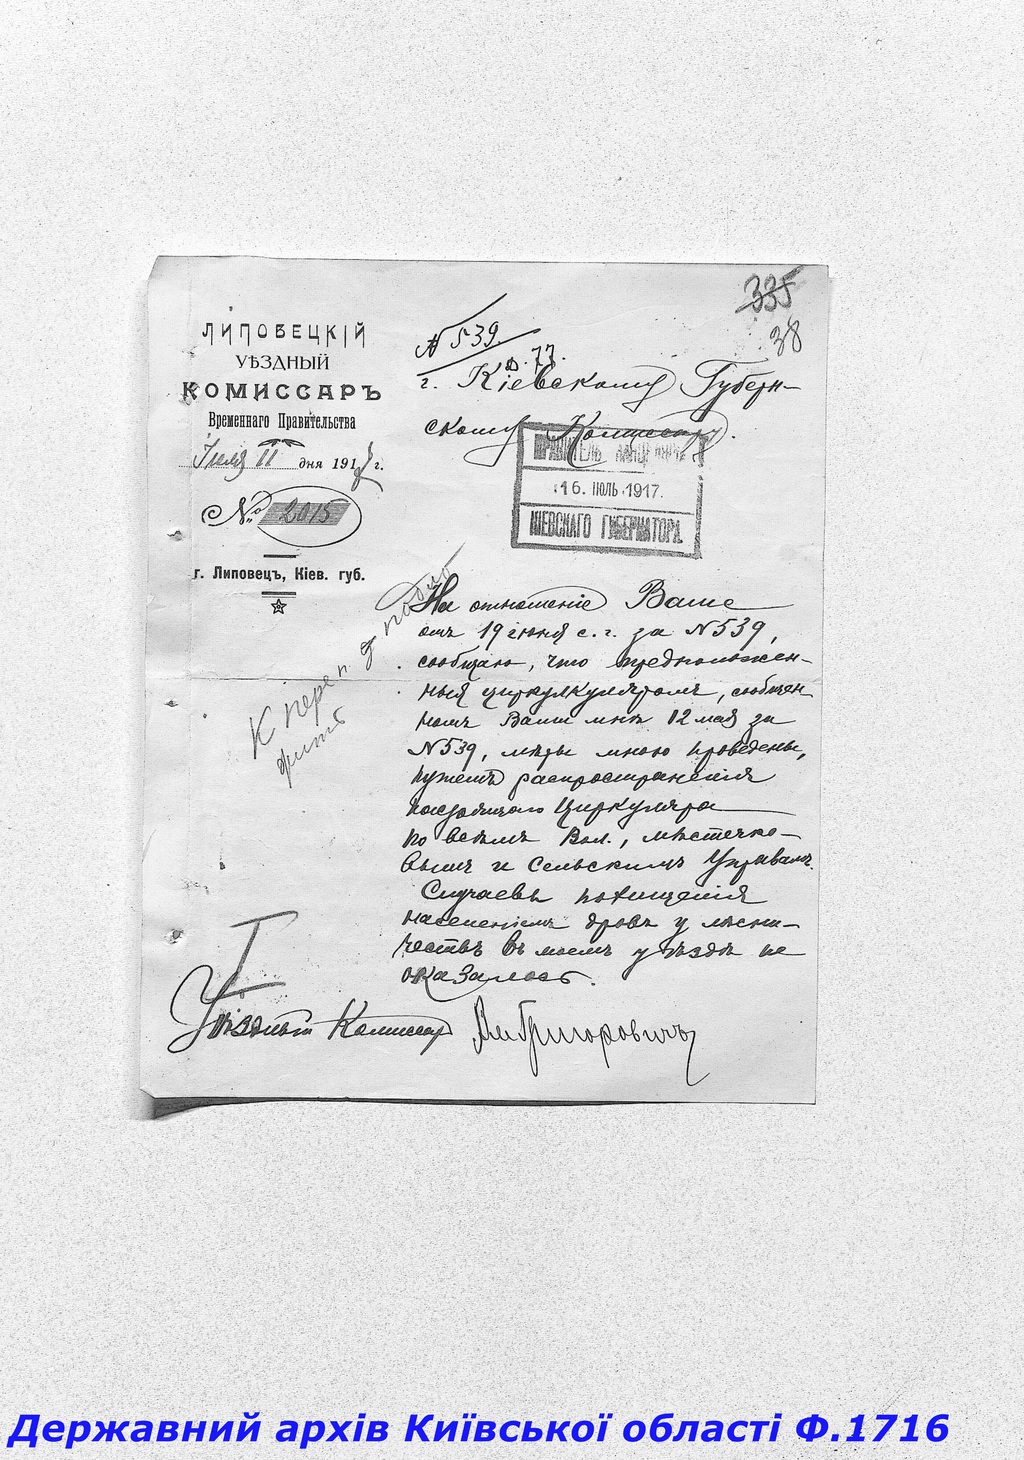 335
38
ЛИПОВЕЦКІЙ
УѢЗДНЫЙ
КОМИССАРЪ
Временнаго Правительства
Іюля 11 дня 1917 г.
№ 2015
г. Липовецъ, Кіев. губ.
№ 539.
Д. 77.
г. Кіевскому Губерн-
скому Комиссару.
16. ІЮЛЬ. 1917.
КІЕВСКАГО ГУБЕРНАТОРА.
На отношеніе Ваше
отъ 19 іюня с. г. за № 539,
сообщаю, что предположен-
ныя циркулкуляромъ, сообщен
номъ Вами мнѣ 12 мая за
№ 539, мѣры мною проведены,
путемъ распространенія
циркуляра
по всѣмъ Вол., мѣстечко-
вымъ и Сельскимъ Управамъ.
Случаевъ похищенія
населеніемъ дровъ у лѣсни-
чествъ въ моемъ уѣздѣ не
оказалось.
К переп
Уѣздный Комиссар Григоровичъ
Державний архів Київської області Ф.1716